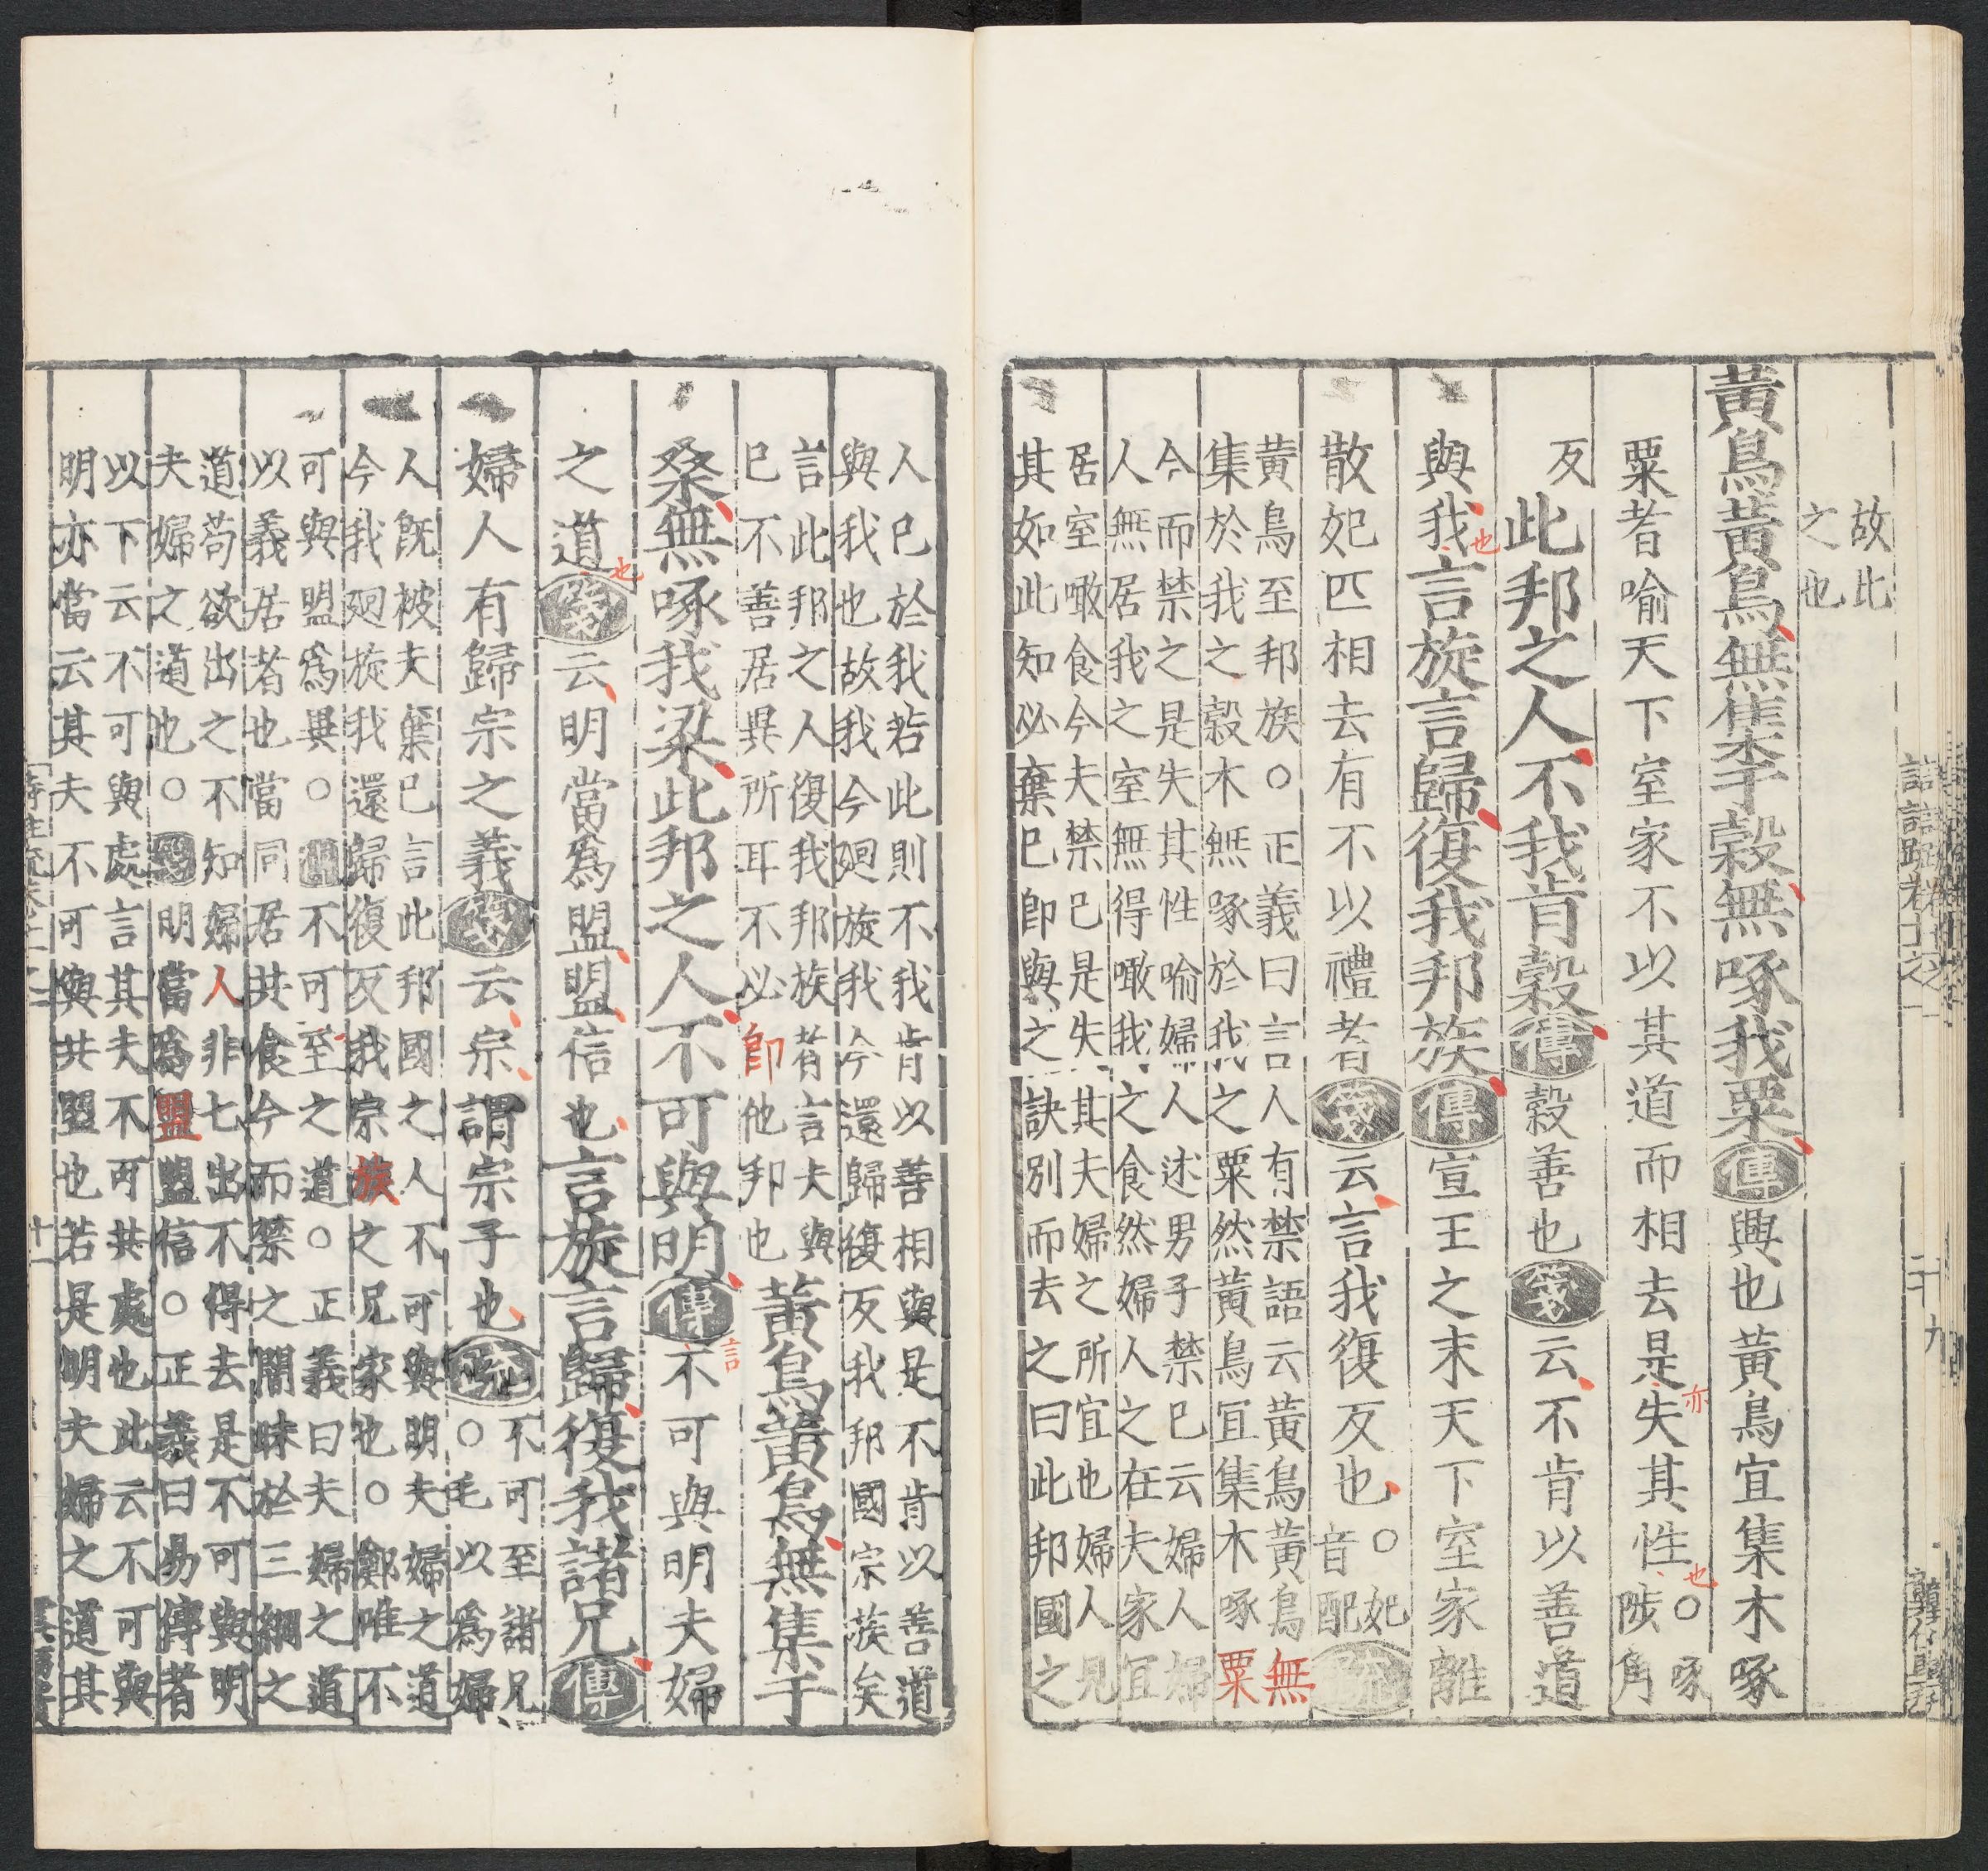 故此
之也
黃鳥黃鳥無集于穀無啄我粟傳興也黃鳥宜集木啄
粟者喻天下室家不以其道而相去是失其性也○啄
亦
陟角
反此邦之人不我肯穀傳穀善也箋云不肯以善道
與我也言旋言歸復我邦族傳宣王之末天下室家離
散妃匹相去有不以禮者箋云言我復反也○妃
音配疏
黃鳥至邦族○正義曰言人有禁語云黃鳥黃鳥無
集於我之穀木無啄於我之粟然黃鳥宜集木啄粟
今而禁之是失其性喻婦人述男子禁已云婦人婦
人無居我之室無得噉我之食然婦人之在夫家宜
居室噉食今夫禁已是失其夫婦之所宜也婦人見
其如此知必棄已卽與之訣別而去之曰此邦國之
人已於我若此則不我肯以善相與是不肯以善道
與我也故我今廻旋我今還歸復反我邦國宗族矣
言此邦之人復我邦族者言夫與
已不善居異所耳不必卽他邦也
黃鳥黃鳥無集于
桑無啄我梁此邦之人不可與明傳不可與明夫婦
言
之道也箋云明當爲盟盟信也言旋言歸復我諸兄傳
婦人有歸宗之義箋云宗謂宗子也疏不可至諸兄
○毛以爲婦
人旣被夫棄已言此邦國之人不可與明夫婦之道
今我廻旋我還歸復反我宗族之兄家也○鄭唯不
可與盟爲異○傳不可至之道○正義曰夫婦之道
以義居者也當同居共食今而禁之闇昧於三綱之
道苟欲出之不知婦人非七出不得去是不可與明
夫婦之道也○箋明當爲盟盟信○正義曰易傳者
以下云不可與處言其夫不可共處也此云不可與
明亦當云其夫不可與共盟也若是明夫婦之道其